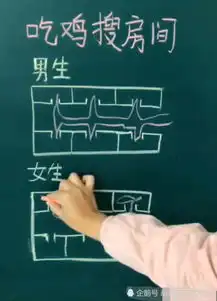 吃鸡搜房间
男生
女生
企鹅号